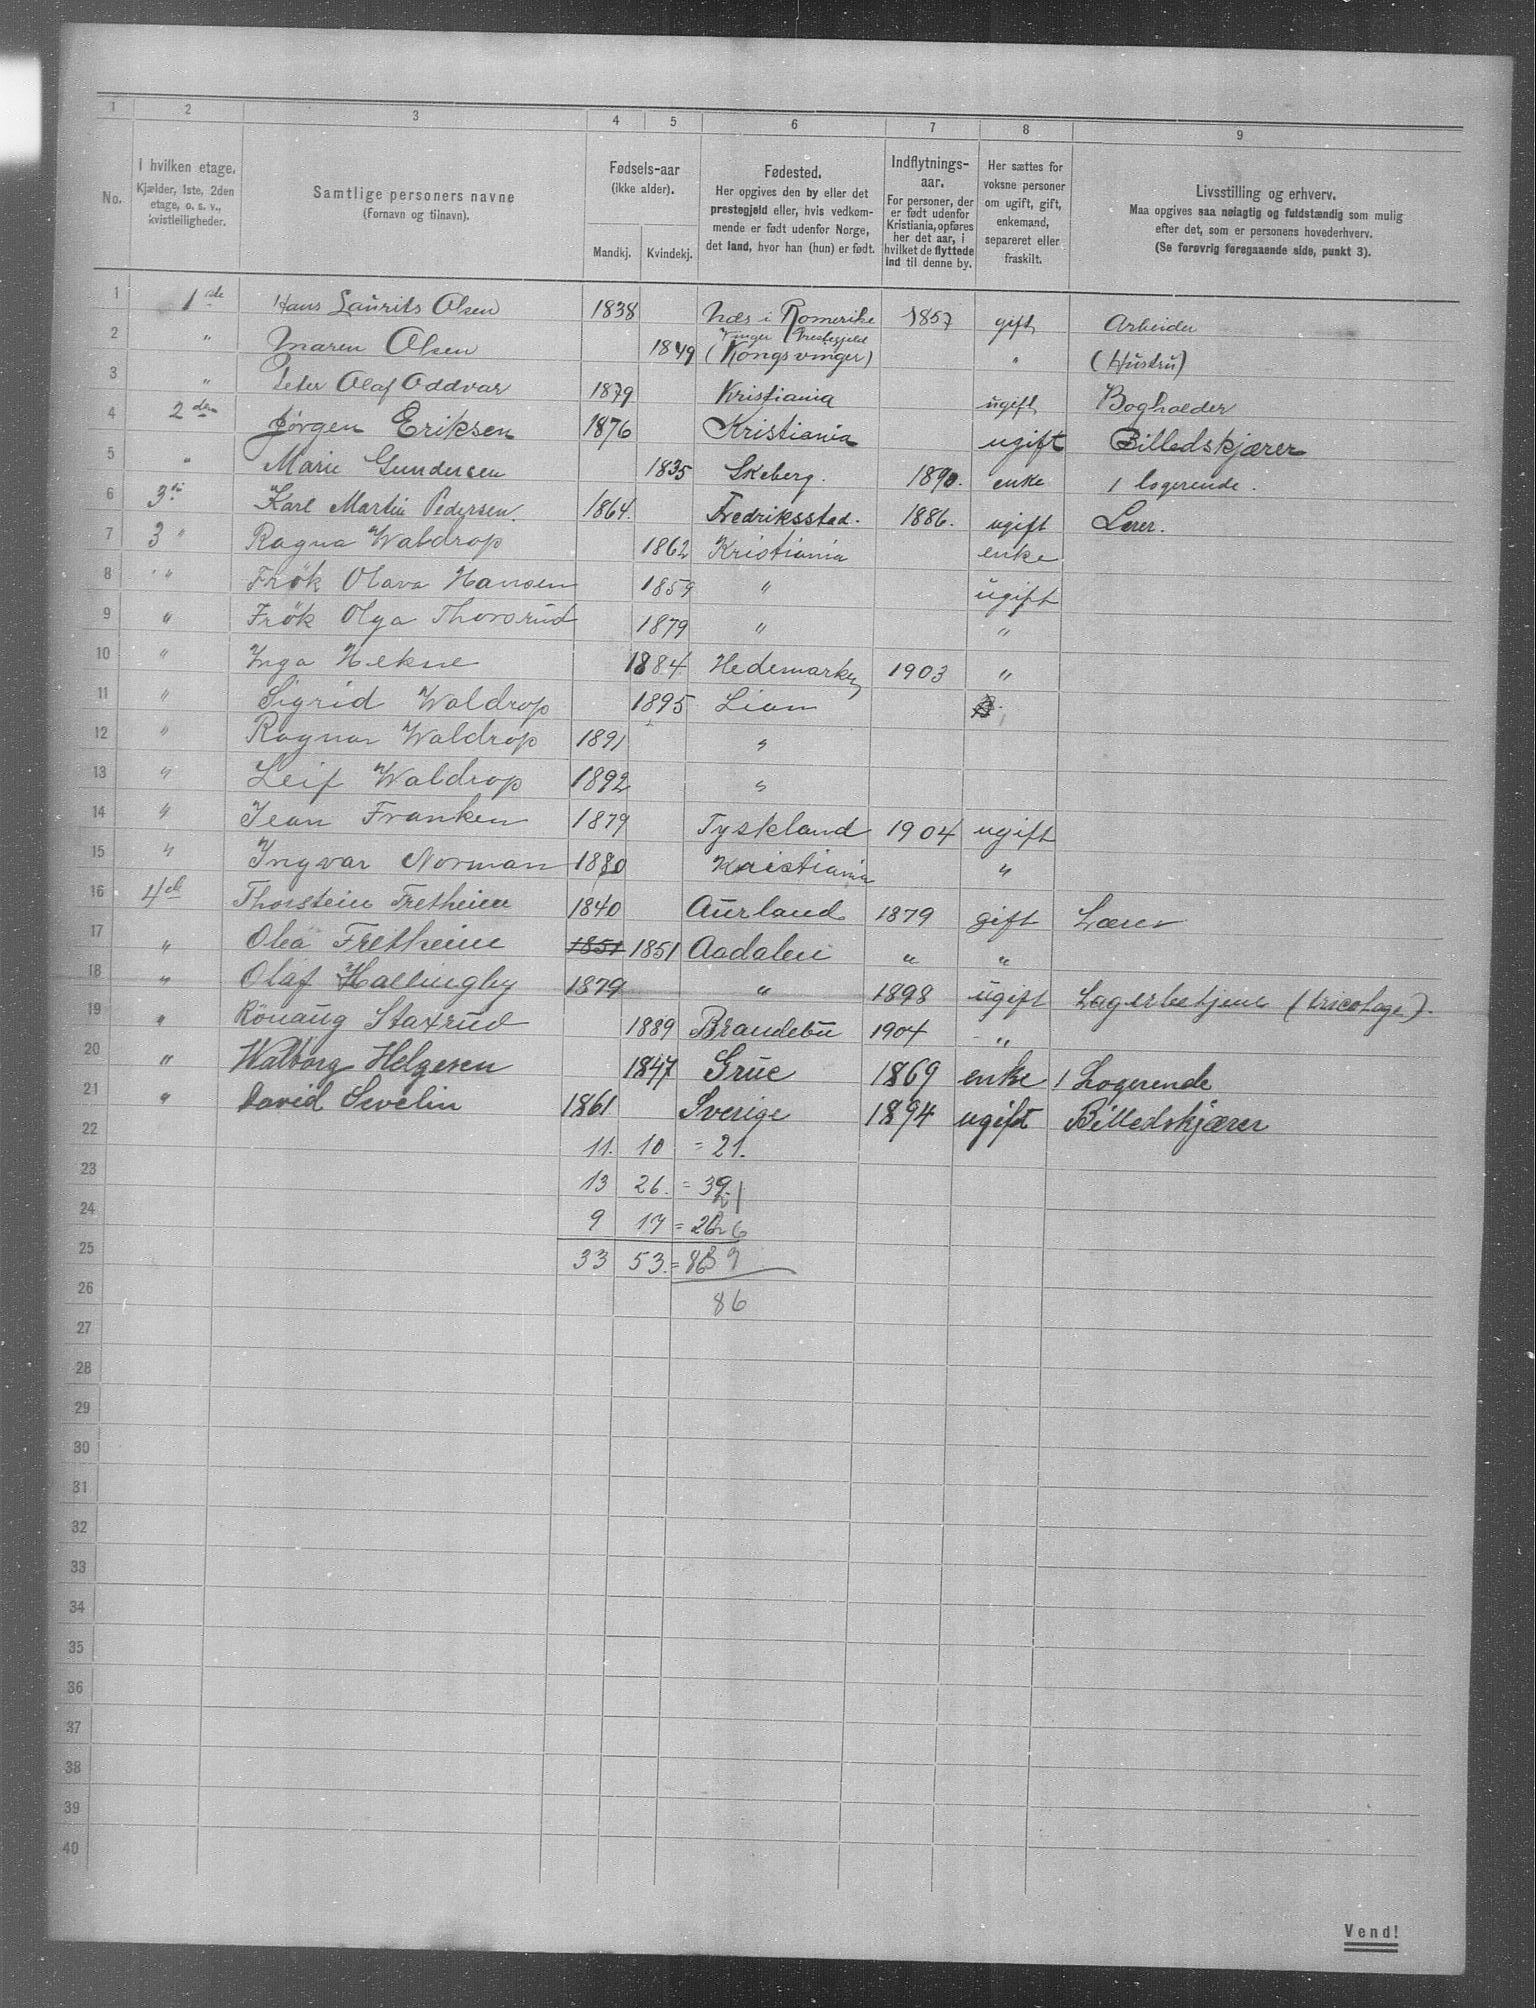 1 2 3 4 5 6 7 8 9
No. I hvilken etage. Kjælder, 1ste, 2den etage, o. s. v., kvistleiligheder. Samtlige personers navne (Fornavn og tilnavn). Fødsels-aar (ikke alder). Mandkj. Kvindekj. Fødested. Her opgives den by eller det prestegjeld eller, hvis vedkommende er født udenfor Norge, det land, hvor han (hun) er født. Indflytnings-aar. For personer, der er født udenfor Kristiania, opføres her det aar, i hvilket de flyttede ind til denne by. Her sættes for voksne personer om ugift, gift, enkemand, separeret eller fraskilt. Livsstilling og erhverv. Maa opgives saa nøiagtig og fuldstændig som mulig efter det, som er personens hovederhverv. (Se forøvrig foregaaende side, punkt 3).
1 1ste Hans Laurits Olsen 1838 Næs i Romerike 1857 gift Arbeider
2 " Maren Olsen 1849 Vinger Prestegjeld (Kongsvinger) " (Hustru)
3 " Peter Olaf Oddvar 1879 Kristiania ugift Bogholder
4 2den Jørgen Eriksen 1876 Kristiania ugift Billedskjærer
5 " Marie Gundersen 1835 Skeberg. 1890. enke 1 logerende.
6 3di Karl Martin Pedersen. 1864. Fredriksstad. 1886. ugift Lærer.
7 3 " Ragna Waldrop 1862 Kristiania enke
8 " " Frøk Olava Hansen 1859 " ugift
9 " Frøk Olga Thorsrud 1879 " "
10 " Inga Hekne 1884 Hedemarken 1903 "
11 " Sigrid Waldrop 1895 Lian
12 " Ragnar Waldrop 1891 "
13 " Leif Waldrop 1892 "
14 " Jean Franken 1879 Tyskland 1904 ugift
15 " Ingvar Norman 1880 Kristiania "
16 4de Thorstein Fretheim 1840 Aurland 1879 gift Lærer
17 " Olea Fretheim 1851 1851 Aadalen " "
18 " Olaf Hallingby 1879 " 1898 ugift Lagerbetjent (tricotage).
19 " Rönaug Staxrud 1889 Brandebu 1904 "
20 " Walborg Helgesen 1847 Grue 1869 enke 1 Logerende
21 " David Sevelin 1861 Sverige 1894 ugift Billedskjærer
22 11. 10 = 21.
23 13 26. = 39
24 9 17 = 26
25 33 53. = 86
26 86
27
28
29
30
31
32
33
34
35
36
37
38
39
40
Vend!